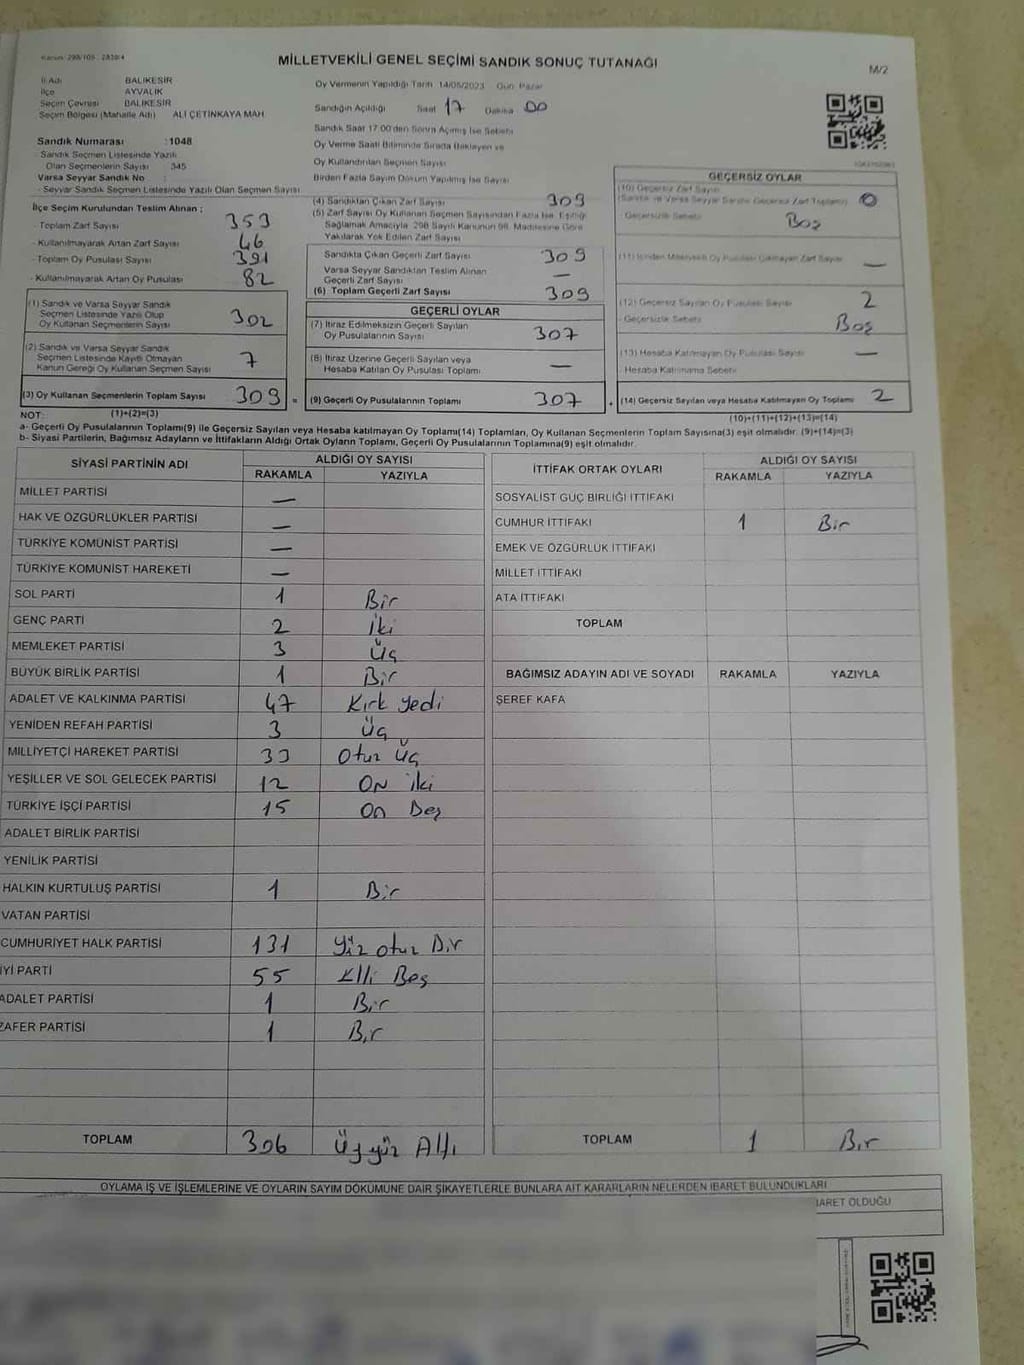 Kanun: 298/105 - 2839/4
MİLLETVEKİLİ GENEL SEÇİMİ SANDIK SONUÇ TUTANAĞI
M/2
İl Adı BALIKESİR
İlçe AYVALIK
Seçim Çevresi BALIKESİR
Seçim Bölgesi (Mahalle Adı) ALİ ÇETİNKAYA MAH.
Sandık Numarası : 1048
Sandık Seçmen Listesinde Yazılı
Olan Seçmenlerin Sayısı 345
Varsa Seyyar Sandık No
- Seyyar Sandık Seçmen Listesinde Yazılı Olan Seçmen Sayısı
Oy Vermenin Yapıldığı Tarih 14/05/2023 Gün Pazar
Sandığın Açıldığı Saat 17 Dakika 00
Sandık Saat 17:00'den Sonra Açılmış İse Sebebi
Oy Verme Saati Bitiminde Sırada Bekleyen ve
Oy Kullandırılan Seçmen Sayısı
Birden Fazla Sayım Döküm Yapılmış İse Sayısı
İlçe Seçim Kurulundan Teslim Alınan :
- Toplam Zarf Sayısı 353
- Kullanılmayarak Artan Zarf Sayısı 46
- Toplam Oy Pusulası Sayısı 391
- Kullanılmayarak Artan Oy Pusulası 82
(1) Sandık ve Varsa Seyyar Sandık
Seçmen Listesinde Yazılı Olup
Oy Kullanan Seçmenlerin Sayısı 302
(2) Sandık ve Varsa Seyyar Sandık
Seçmen Listesinde Kayıtlı Olmayan
Kanun Gereği Oy Kullanan Seçmen Sayısı 7
(3) Oy Kullanan Seçmenlerin Toplam Sayısı 309 =
(4) Sandıktan Çıkan Zarf Sayısı 309
(5) Zarf Sayısı Oy Kullanan Seçmen Sayısından Fazla İse, Eşitliği
Sağlamak Amacıyla 298 Sayılı Kanunun 98. Maddesine Göre
Yakılarak Yok Edilen Zarf Sayısı
Sandıkta Çıkan Geçerli Zarf Sayısı 309
Varsa Seyyar Sandıktan Teslim Alınan
Geçerli Zarf Sayısı —
(6) Toplam Geçerli Zarf Sayısı 309
GEÇERLİ OYLAR
(7) İtiraz Edilmeksizin Geçerli Sayılan
Oy Pusulalarının Sayısı 307
(8) İtiraz Üzerine Geçerli Sayılan veya
Hesaba Katılan Oy Pusulası Toplamı —
(9) Geçerli Oy Pusulalarının Toplamı 307 +
GEÇERSİZ OYLAR
(10) Geçersiz Zarf Sayısı
(Sandık ve Varsa Seyyar Sandık Geçersiz Zarf Toplamı) 0
Geçersizlik Sebebi Boş
(11) İçinden Milletvekili Oy Pusulası Çıkmayan Zarf Sayısı —
(12) Geçersiz Sayılan Oy Pusulası Sayısı 2
- Geçersizlik Sebebi Boş
(13) Hesaba Katılmayan Oy Pusulası Sayısı —
- Hesaba Katılmama Sebebi
(14) Geçersiz Sayılan veya Hesaba Katılmayan Oy Toplamı 2
NOT: (1)+(2)=(3) (10)+(11)+(12)+(13)=(14)
a- Geçerli Oy Pusulalarının Toplamı(9) ile Geçersiz Sayılan veya Hesaba katılmayan Oy Toplamı(14) Toplamları, Oy Kullanan Seçmenlerin Toplam Sayısına(3) eşit olmalıdır. (9)+(14)=(3)
b- Siyasi Partilerin, Bağımsız Adayların ve İttifakların Aldığı Ortak Oyların Toplamı, Geçerli Oy Pusulalarının Toplamına(9) eşit olmalıdır.
SİYASİ PARTİNİN ADI ALDIĞI OY SAYISI
RAKAMLA YAZIYLA
MİLLET PARTİSİ —
HAK VE ÖZGÜRLÜKLER PARTİSİ —
TÜRKİYE KOMÜNİST PARTİSİ —
TÜRKİYE KOMÜNİST HAREKETİ —
SOL PARTİ 1 Bir
GENÇ PARTİ 2 İki
MEMLEKET PARTİSİ 3 Üç
BÜYÜK BİRLİK PARTİSİ 1 Bir
ADALET VE KALKINMA PARTİSİ 47 Kırk yedi
YENİDEN REFAH PARTİSİ 3 Üç
MİLLİYETÇİ HAREKET PARTİSİ 33 Otuz Üç
YEŞİLLER VE SOL GELECEK PARTİSİ 12 On iki
TÜRKİYE İŞÇİ PARTİSİ 15 On Beş
ADALET BİRLİK PARTİSİ
YENİLİK PARTİSİ
HALKIN KURTULUŞ PARTİSİ 1 Bir
VATAN PARTİSİ
CUMHURİYET HALK PARTİSİ 131 Yüz otuz Bir
İYİ PARTİ 55 Elli Beş
ADALET PARTİSİ 1 Bir
ZAFER PARTİSİ 1 Bir
TOPLAM 306 Üçyüz Altı
İTTİFAK ORTAK OYLARI ALDIĞI OY SAYISI
RAKAMLA YAZIYLA
SOSYALİST GÜÇ BİRLİĞİ İTTİFAKI
CUMHUR İTTİFAKI 1 Bir
EMEK VE ÖZGÜRLÜK İTTİFAKI
MİLLET İTTİFAKI
ATA İTTİFAKI
TOPLAM
BAĞIMSIZ ADAYIN ADI VE SOYADI RAKAMLA YAZIYLA
ŞEREF KAFA
TOPLAM 1 Bir
OYLAMA İŞ VE İŞLEMLERİNE VE OYLARIN SAYIM DÖKÜMÜNE DAİR ŞİKAYETLERLE BUNLARA AİT KARARLARIN NELERDEN İBARET BULUNDUKLARI
İBARET OLDUĞU